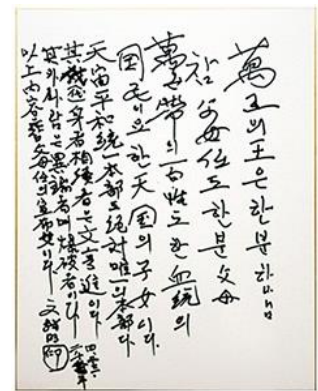 萬王의 王은 한분 하나님
참父母任도 한분 父母
萬世帶의 百性도 한 血統의
国民이요 한 天国의 子女이다.
天宙平和統一本部도 絶対唯一의 本部다.
其 代身者 相續者는 文亨進이다.
其外사람은 異端者며 爆破者이다.
以上內容은 父母任의 宣布文이다. 文鮮明